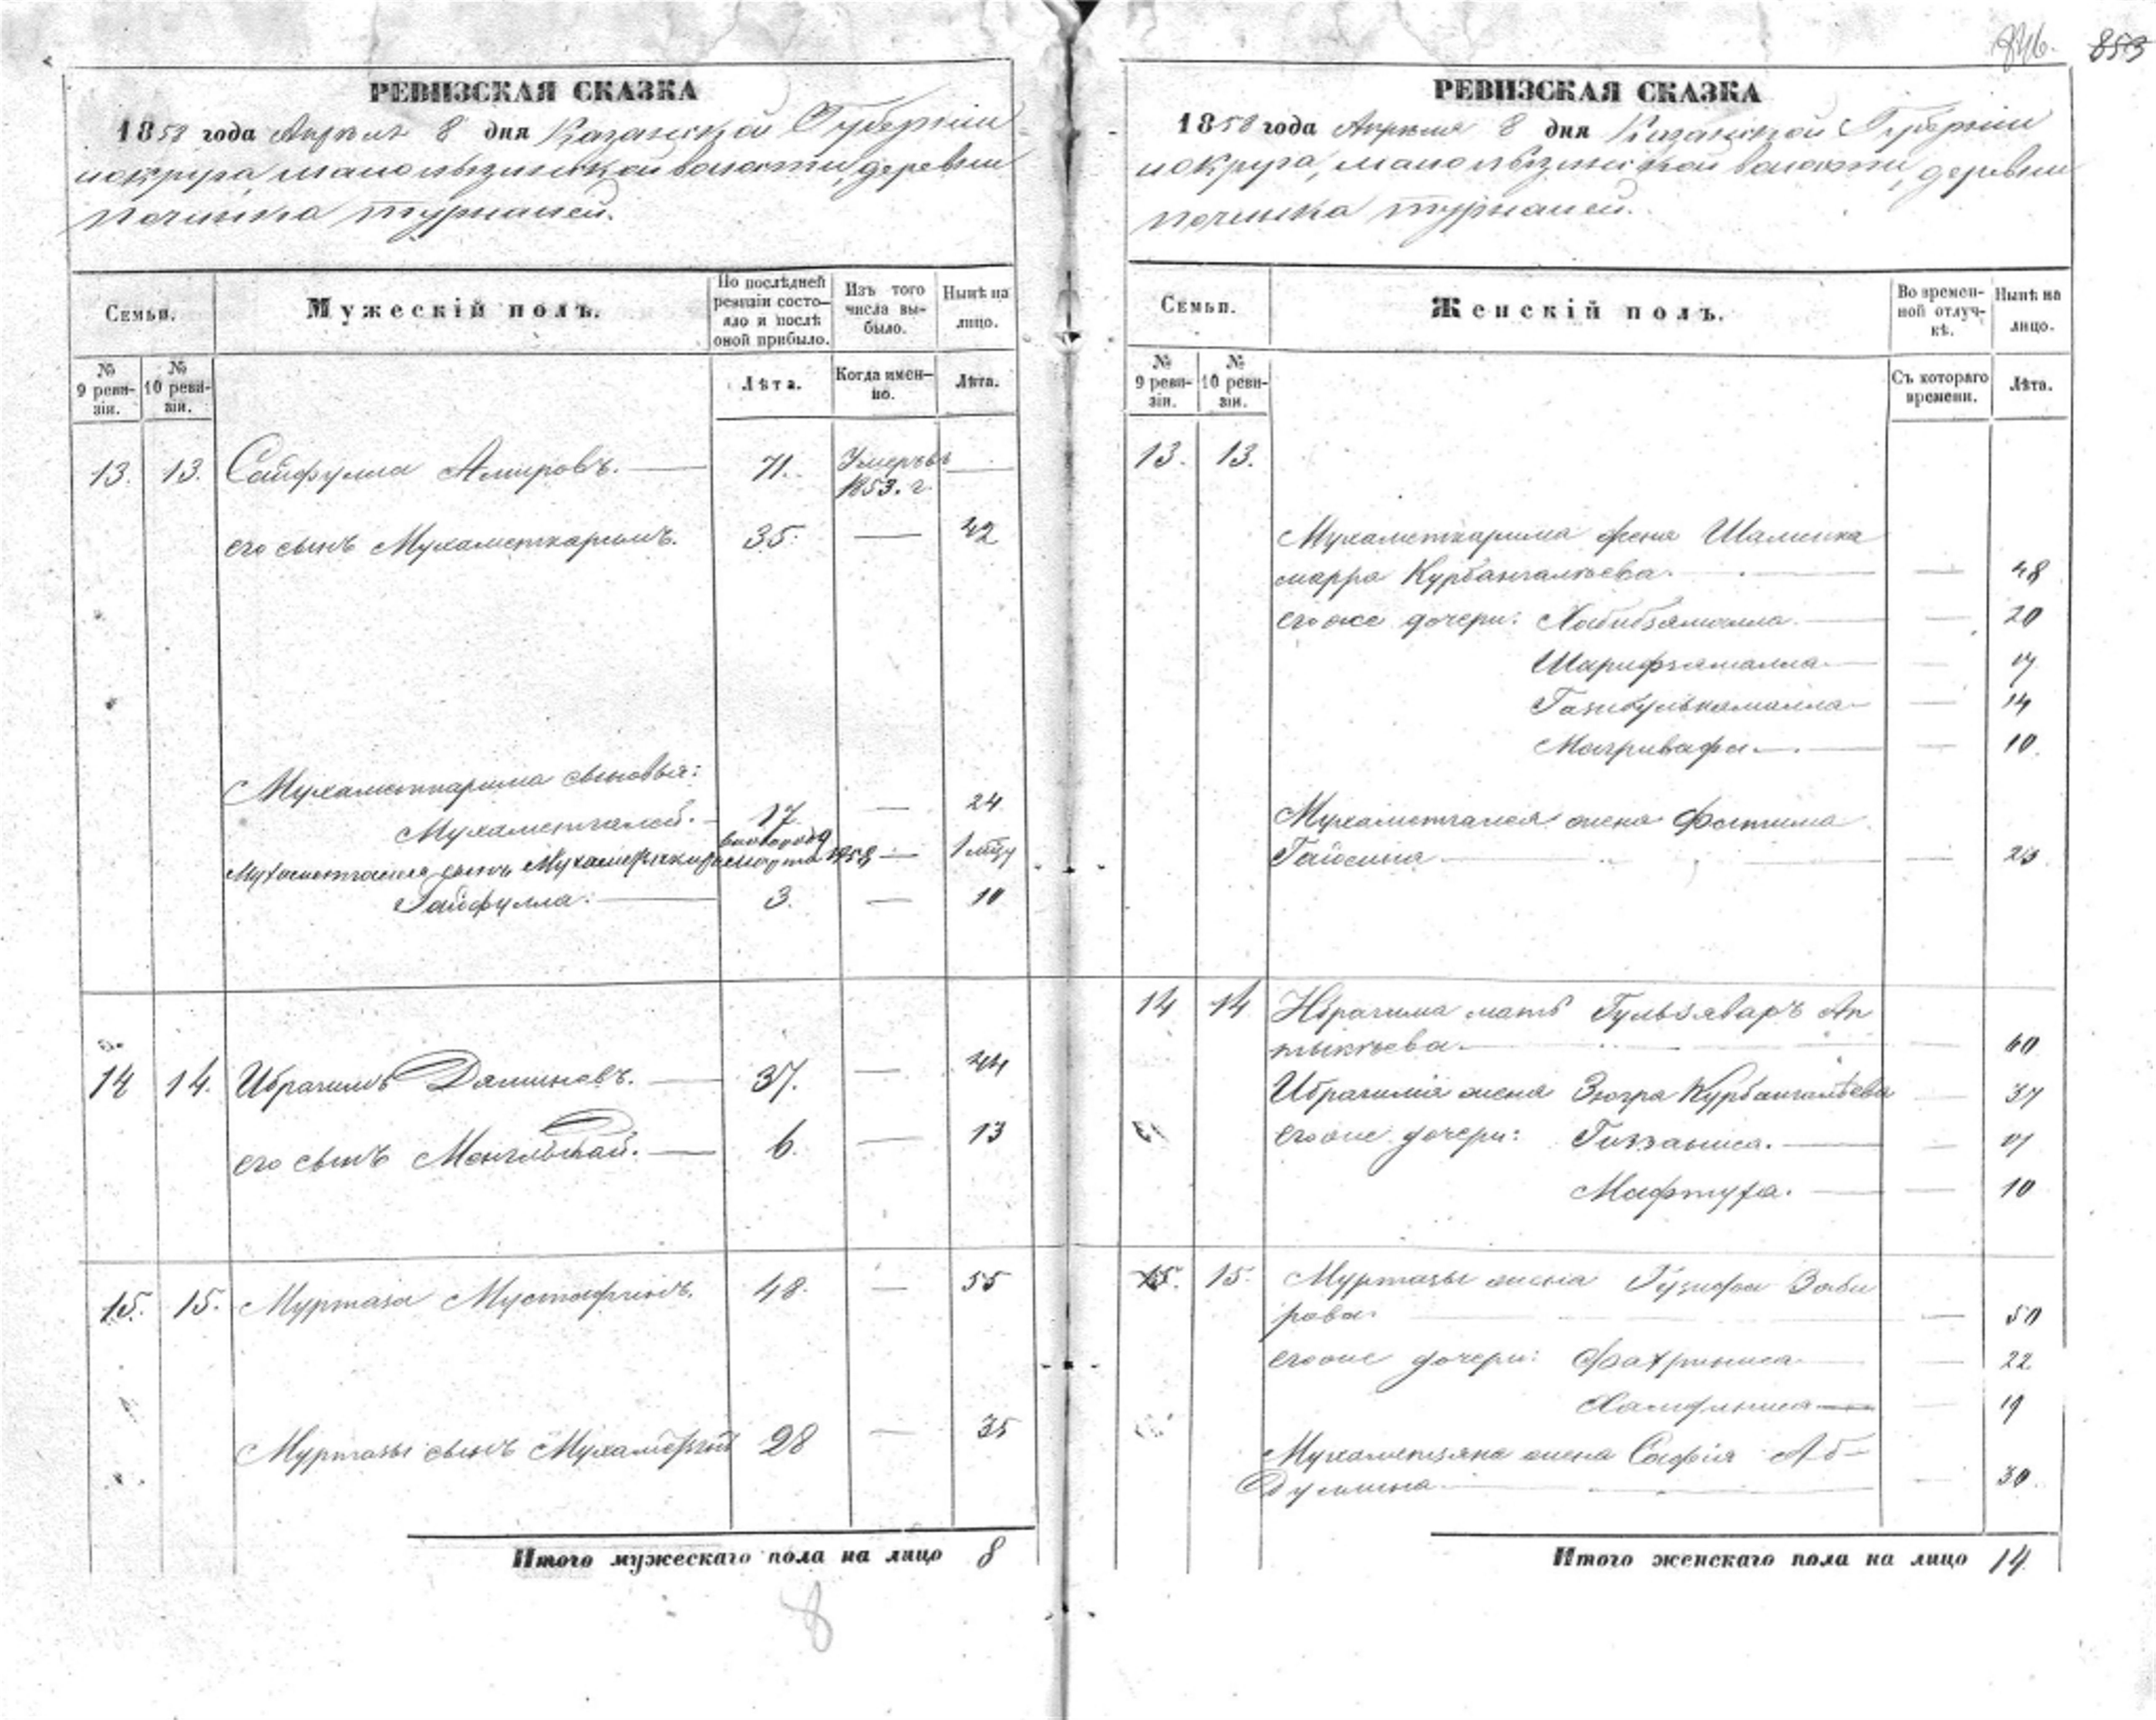 846. 853
РЕВИЗСКАЯ СКАЗКА
1858 года Апреля 8 дня Казанской Губернии
и округа, деревни
починка турнаней.
Семьи.
Мужескій полъ.
По послѣдней ревизіи состояло и послѣ оной прибыло.
Изъ того числа выбыло.
Нынѣ на лицо.
№ 9 ревизіи.
№ 10 ревизіи.
Лѣта.
Когда именно.
Лѣта.
13. 13. Сайфулла Амировъ. 71. Умеръ въ 1853. г.
его сынъ Мухаметкаримъ. 35. — 42
Мухаметкарима сыновья:
Мухаметгалей. 17 — 24
Мухаметгалея сынъ 1858 —
Гайфулла. 3. — 10
14 14. Ибрагимъ Даминовъ. 37. — 44
его сынъ Менглыбай. 6. — 13
15. 15. Муртаза Мустафинъ. 48. — 55
Муртазы сынъ 28 — 35
Итого мужескаго пола на лицо 8
8
РЕВИЗСКАЯ СКАЗКА
1858 года Апреля 8 дня Казанской Губернии
и округа, деревни
починка турнаней.
Семьи.
Женскій полъ.
Во временной отлучкѣ.
Нынѣ на лицо.
№ 9 ревизіи.
№ 10 ревизіи.
Съ котораго времени.
Лѣта.
13. 13.
Мухаметкарима жена Шамсика
марра Курбангалеева. — 48
его же дочери: Хабибзямалла. — 20
Шарифзямалла — 17
— 14
Магривафа — 10.
Мухаметгалея жена Фатима
Гайсина — 20
14 14 Ибрагима мать Гульзяваръ Ап
тыкеева — 60
Ибрагима жена Зюгра Курбангалеева — 37
его же дочери: Гиззаниса. — 17
Мафтуха. — 10
15. 15. Муртазы жена Гузифа Заби
рова — 50
его же дочери: Фахриниса — 22
— 19
Мухаметзяна жена Софія Аб-
дуллина — 30.
Итого женскаго пола на лицо 14